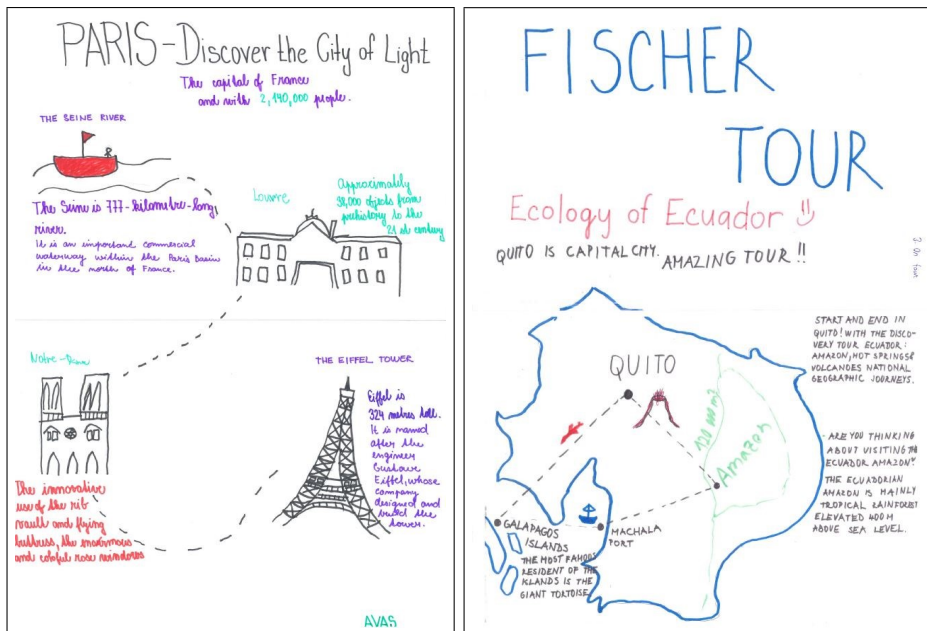 PARIS - Discover the City of Light
The capital of France
and with 2,140,000 people.
THE SEINE RIVER
The Seine is 777-kilometre-long
river.
It is an important commercial
waterway within the Paris Basin
in the north of France.
Louvre
Approximately
38,000 objects from
prehistory to the
21st century
Notre-Dame
The innovative
use of the rib
vault and flying
buttress, the enormous
and colorful rose windows
THE EIFFEL TOWER
Eiffel is
324 metres tall.
It is named
after the
engineer
Gustave
Eiffel, whose
company
designed and
build the
tower.
AVAS
FISCHER
TOUR
Ecology of Ecuador
QUITO IS CAPITAL CITY. AMAZING TOUR!!
On tour
START AND END IN
QUITO! WITH THE DISCO-
VERY TOUR ECUADOR:
AMAZON, HOT SPRINGS &
VOLCANOES NATIONAL
GEOGRAPHIC JOURNEYS.
QUITO
Amazon
ARE YOU THINKING
ABOUT VISITING THE
ECUADOR AMAZON?
THE ECUADORIAN
AMAZON IS MAINLY
TROPICAL RAINFOREST
ELEVATED 400 M
ABOVE SEA LEVEL.
GALAPAGOS
ISLANDS
MACHALA
PORT
THE MOST FAMOUS
RESIDENT OF THE
ISLANDS IS THE
GIANT TORTOISE.